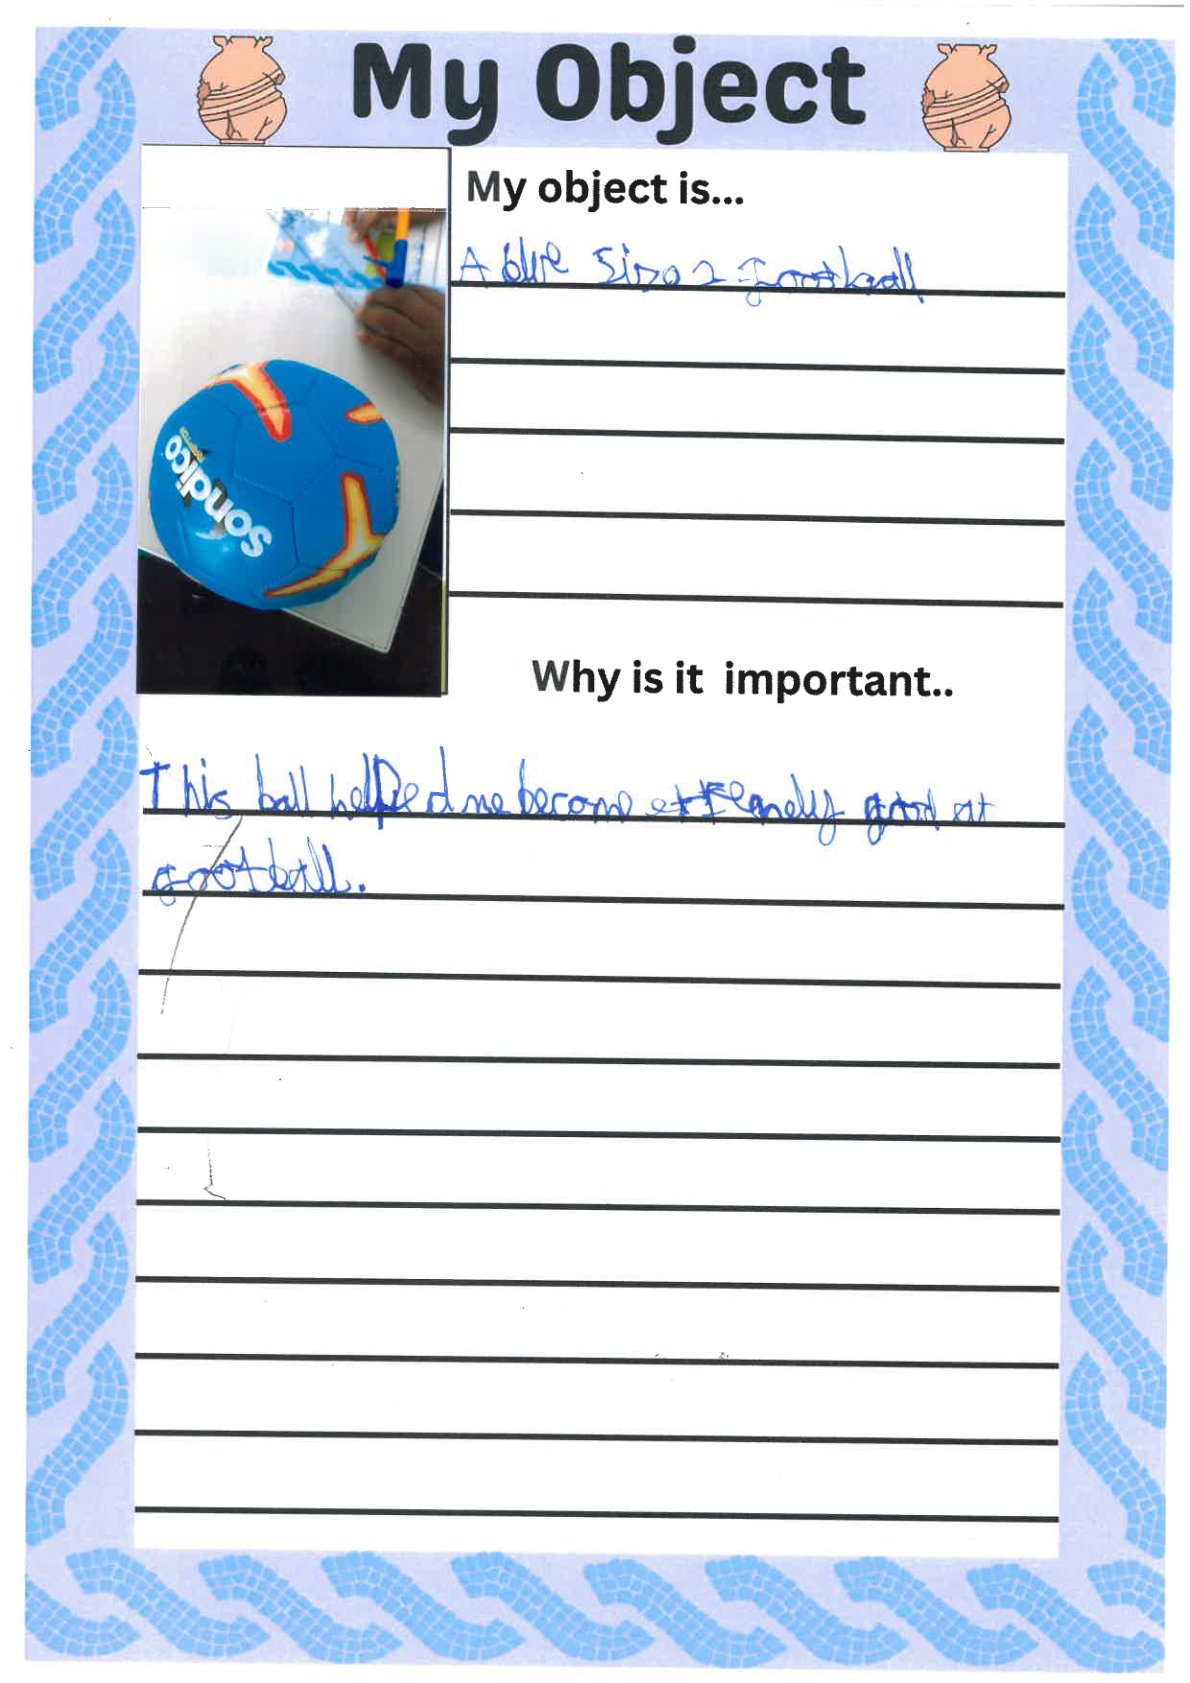 My Object
My object is...
A blue Size 2 football
Sondico
Why is it important..
This ball helped me become extremely good at
football.